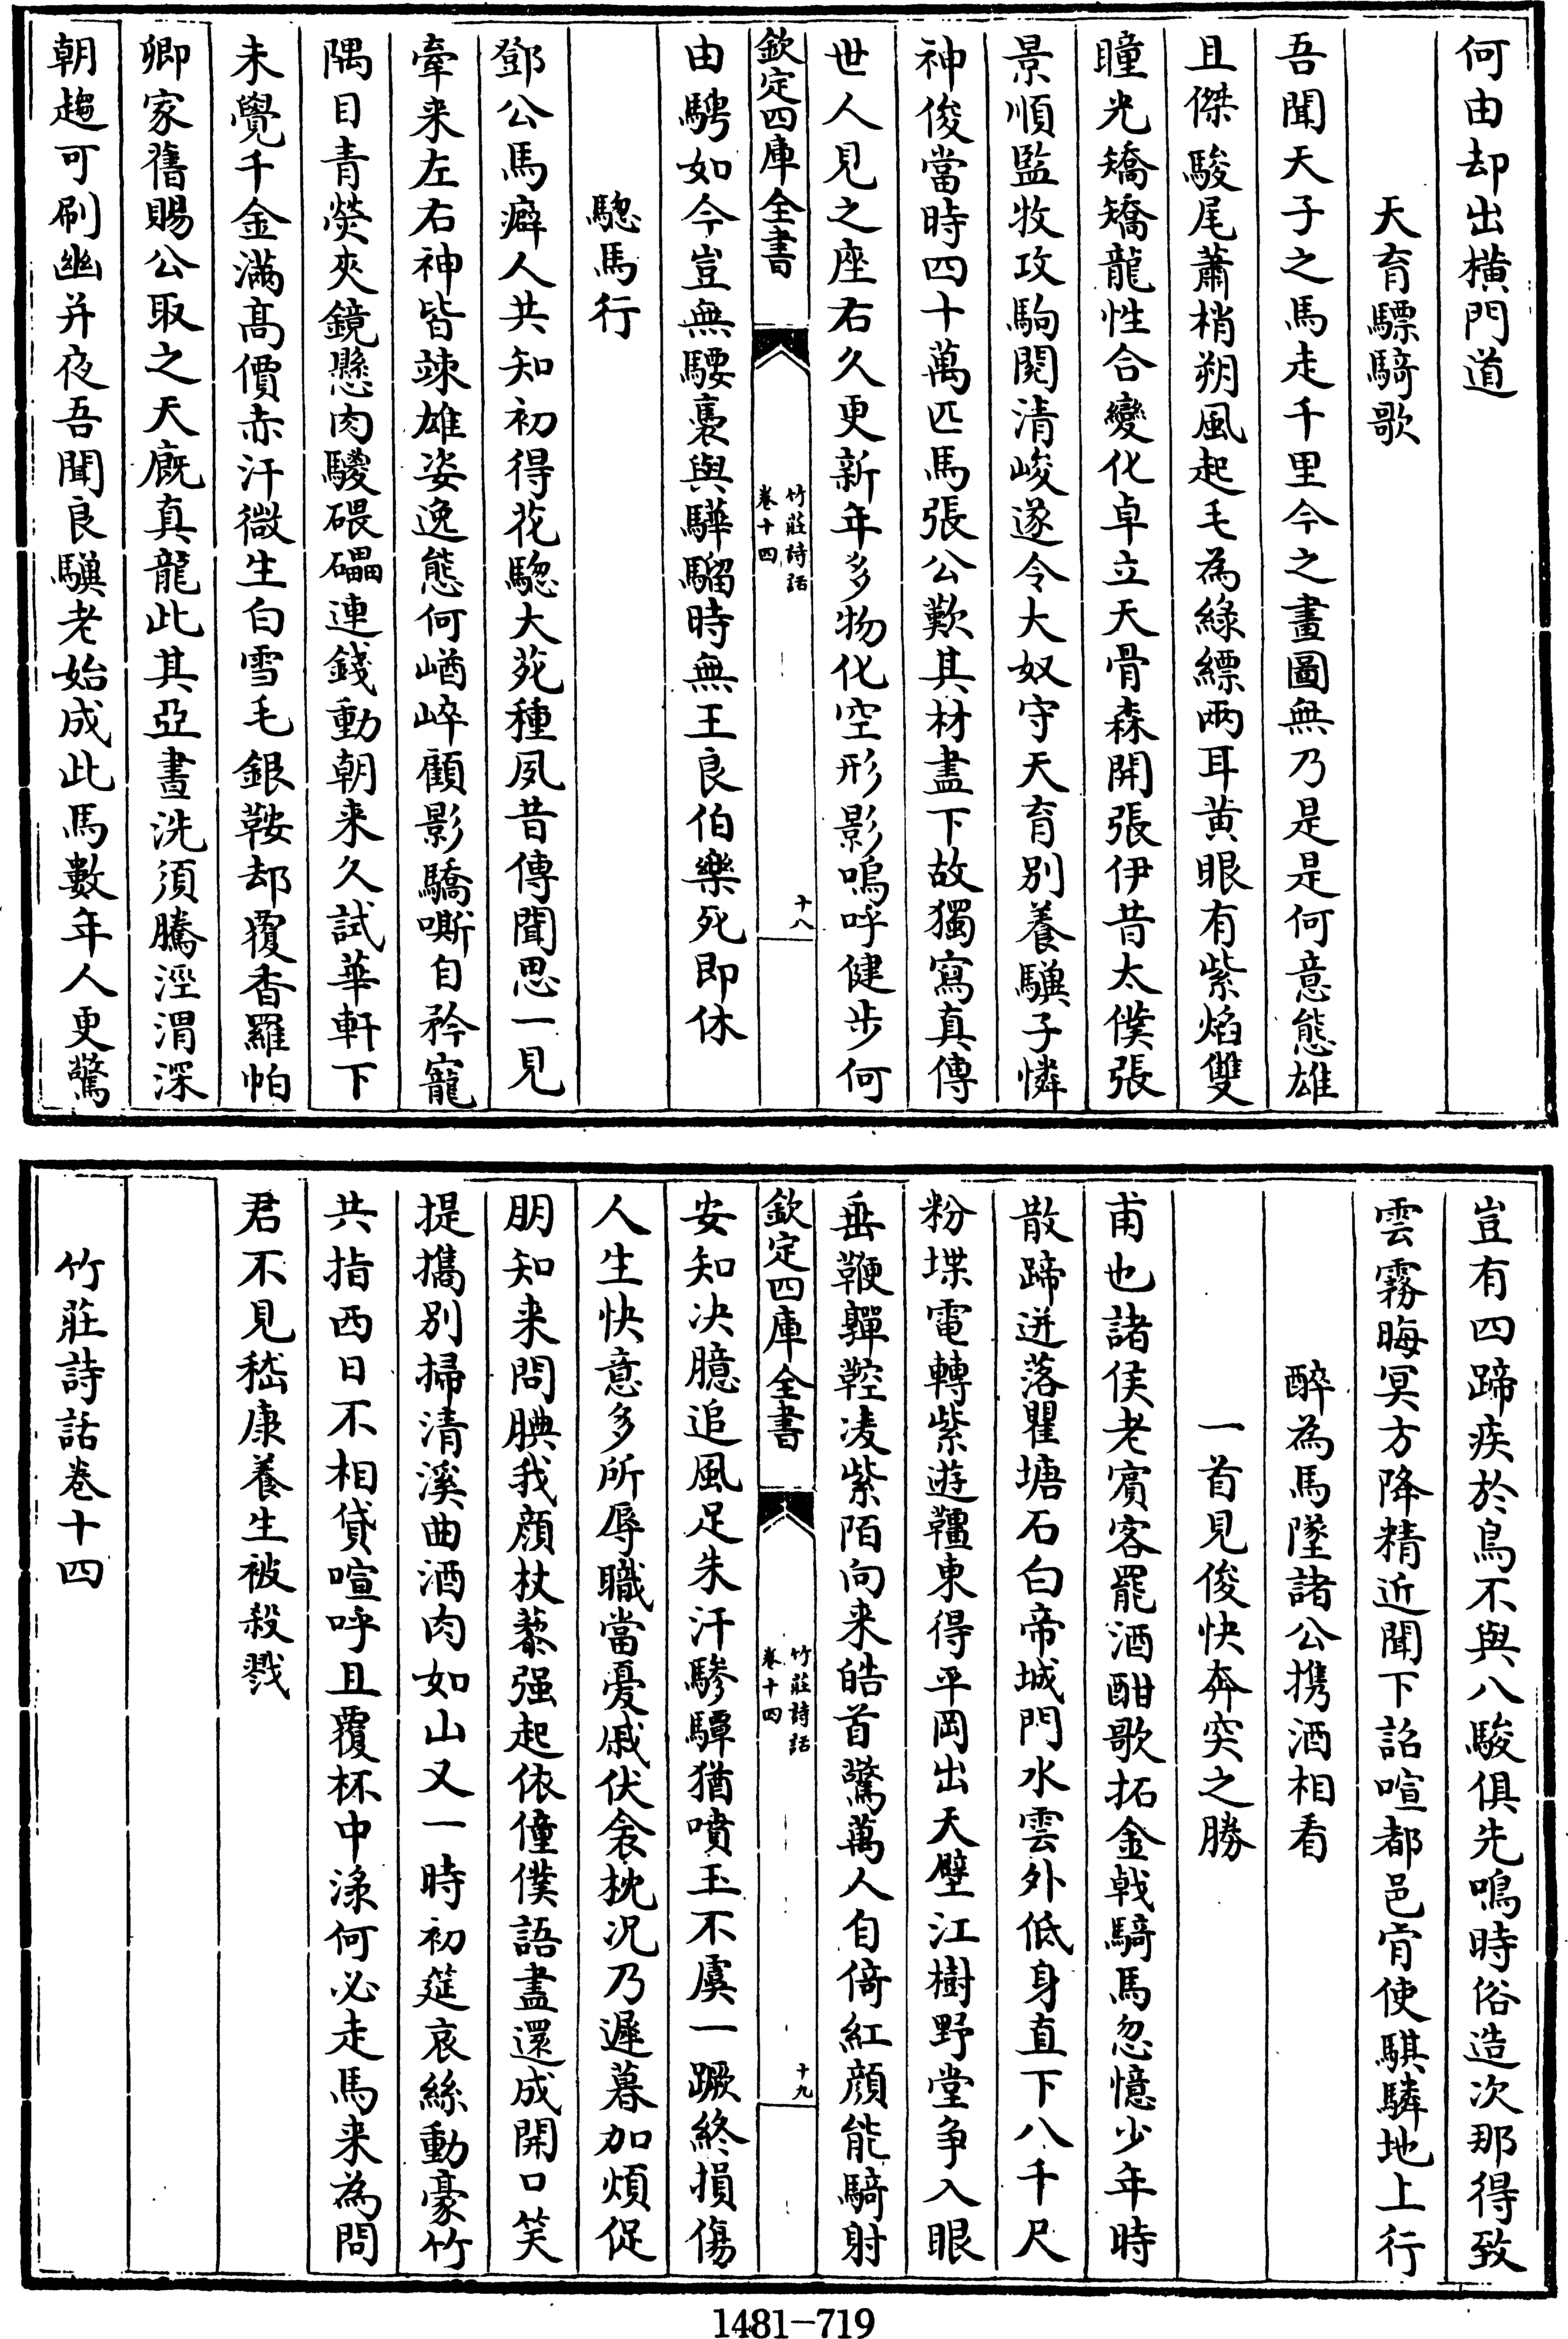 何由却出橫門道
天育驃騎歌
吾聞天子之馬走千里今之畫圖無乃是是何意態雄
且傑駿尾蕭梢朔風起毛為綠縹兩耳黄眼有紫焰雙
瞳光矯矯龍性合變化卓立天骨森開張伊昔太僕張
景順監牧攻駒閱清峻遂令大奴守天育別養驥子憐
神俊當時四十萬匹馬張公歎其材盡下故獨寫真傳
世人見之座右久更新年多物化空形影嗚呼健步何
欽定四庫全書
竹莊詩話
卷十四
十八
由騁如今豈無騕褭與驊騮時無王良伯樂死即休
驄馬行
鄧公馬癖人共知初得花驄大苑種夙昔傳聞思一見
牽来左右神皆竦雄姿逸態何崷崪顧影驕嘶自矜寵
隅目青熒夾鏡懸肉騣碨礧連錢動朝来久試華軒下
未覺千金滿髙價赤汗微生白雪毛銀鞍却覆香羅帕
卿家舊賜公取之天廐真龍此其亞晝洗須騰涇渭深
朝趨可刷幽并夜吾聞良驥老始成此馬數年人更驚
豈有四蹄疾於鳥不與八駿俱先鳴時俗造次那得致
雲霧晦冥方降精近聞下詔喧都邑肯使騏驎地上行
醉為馬墜諸公携酒相看
一首見俊快奔突之勝
甫也諸侯老賓客罷酒酣歌拓金戟騎馬忽憶少年時
散蹄迸落瞿塘石白帝城門水雲外低身直下八千尺
粉堞電轉紫遊韁東得平岡出天壁江樹野堂争入眼
垂鞭嚲鞚凌紫陌向来皓首驚萬人自倚紅顔能騎射
欽定四庫全書
竹莊詩話
卷十四
十九
安知决臆追風足朱汗驂驔猶噴玉不虞一蹶終損傷
人生快意多所辱職當憂戚伏衾枕况乃遲暮加煩促
朋知来問腆我顔杖藜强起依僮僕語盡還成開口笑
提攜別掃清溪曲酒肉如山又一時初筵哀絲動豪竹
共指西日不相貸喧呼且覆杯中淥何必走馬来為問
君不見嵇康養生被殺戮
竹莊詩話卷十四
1481-719